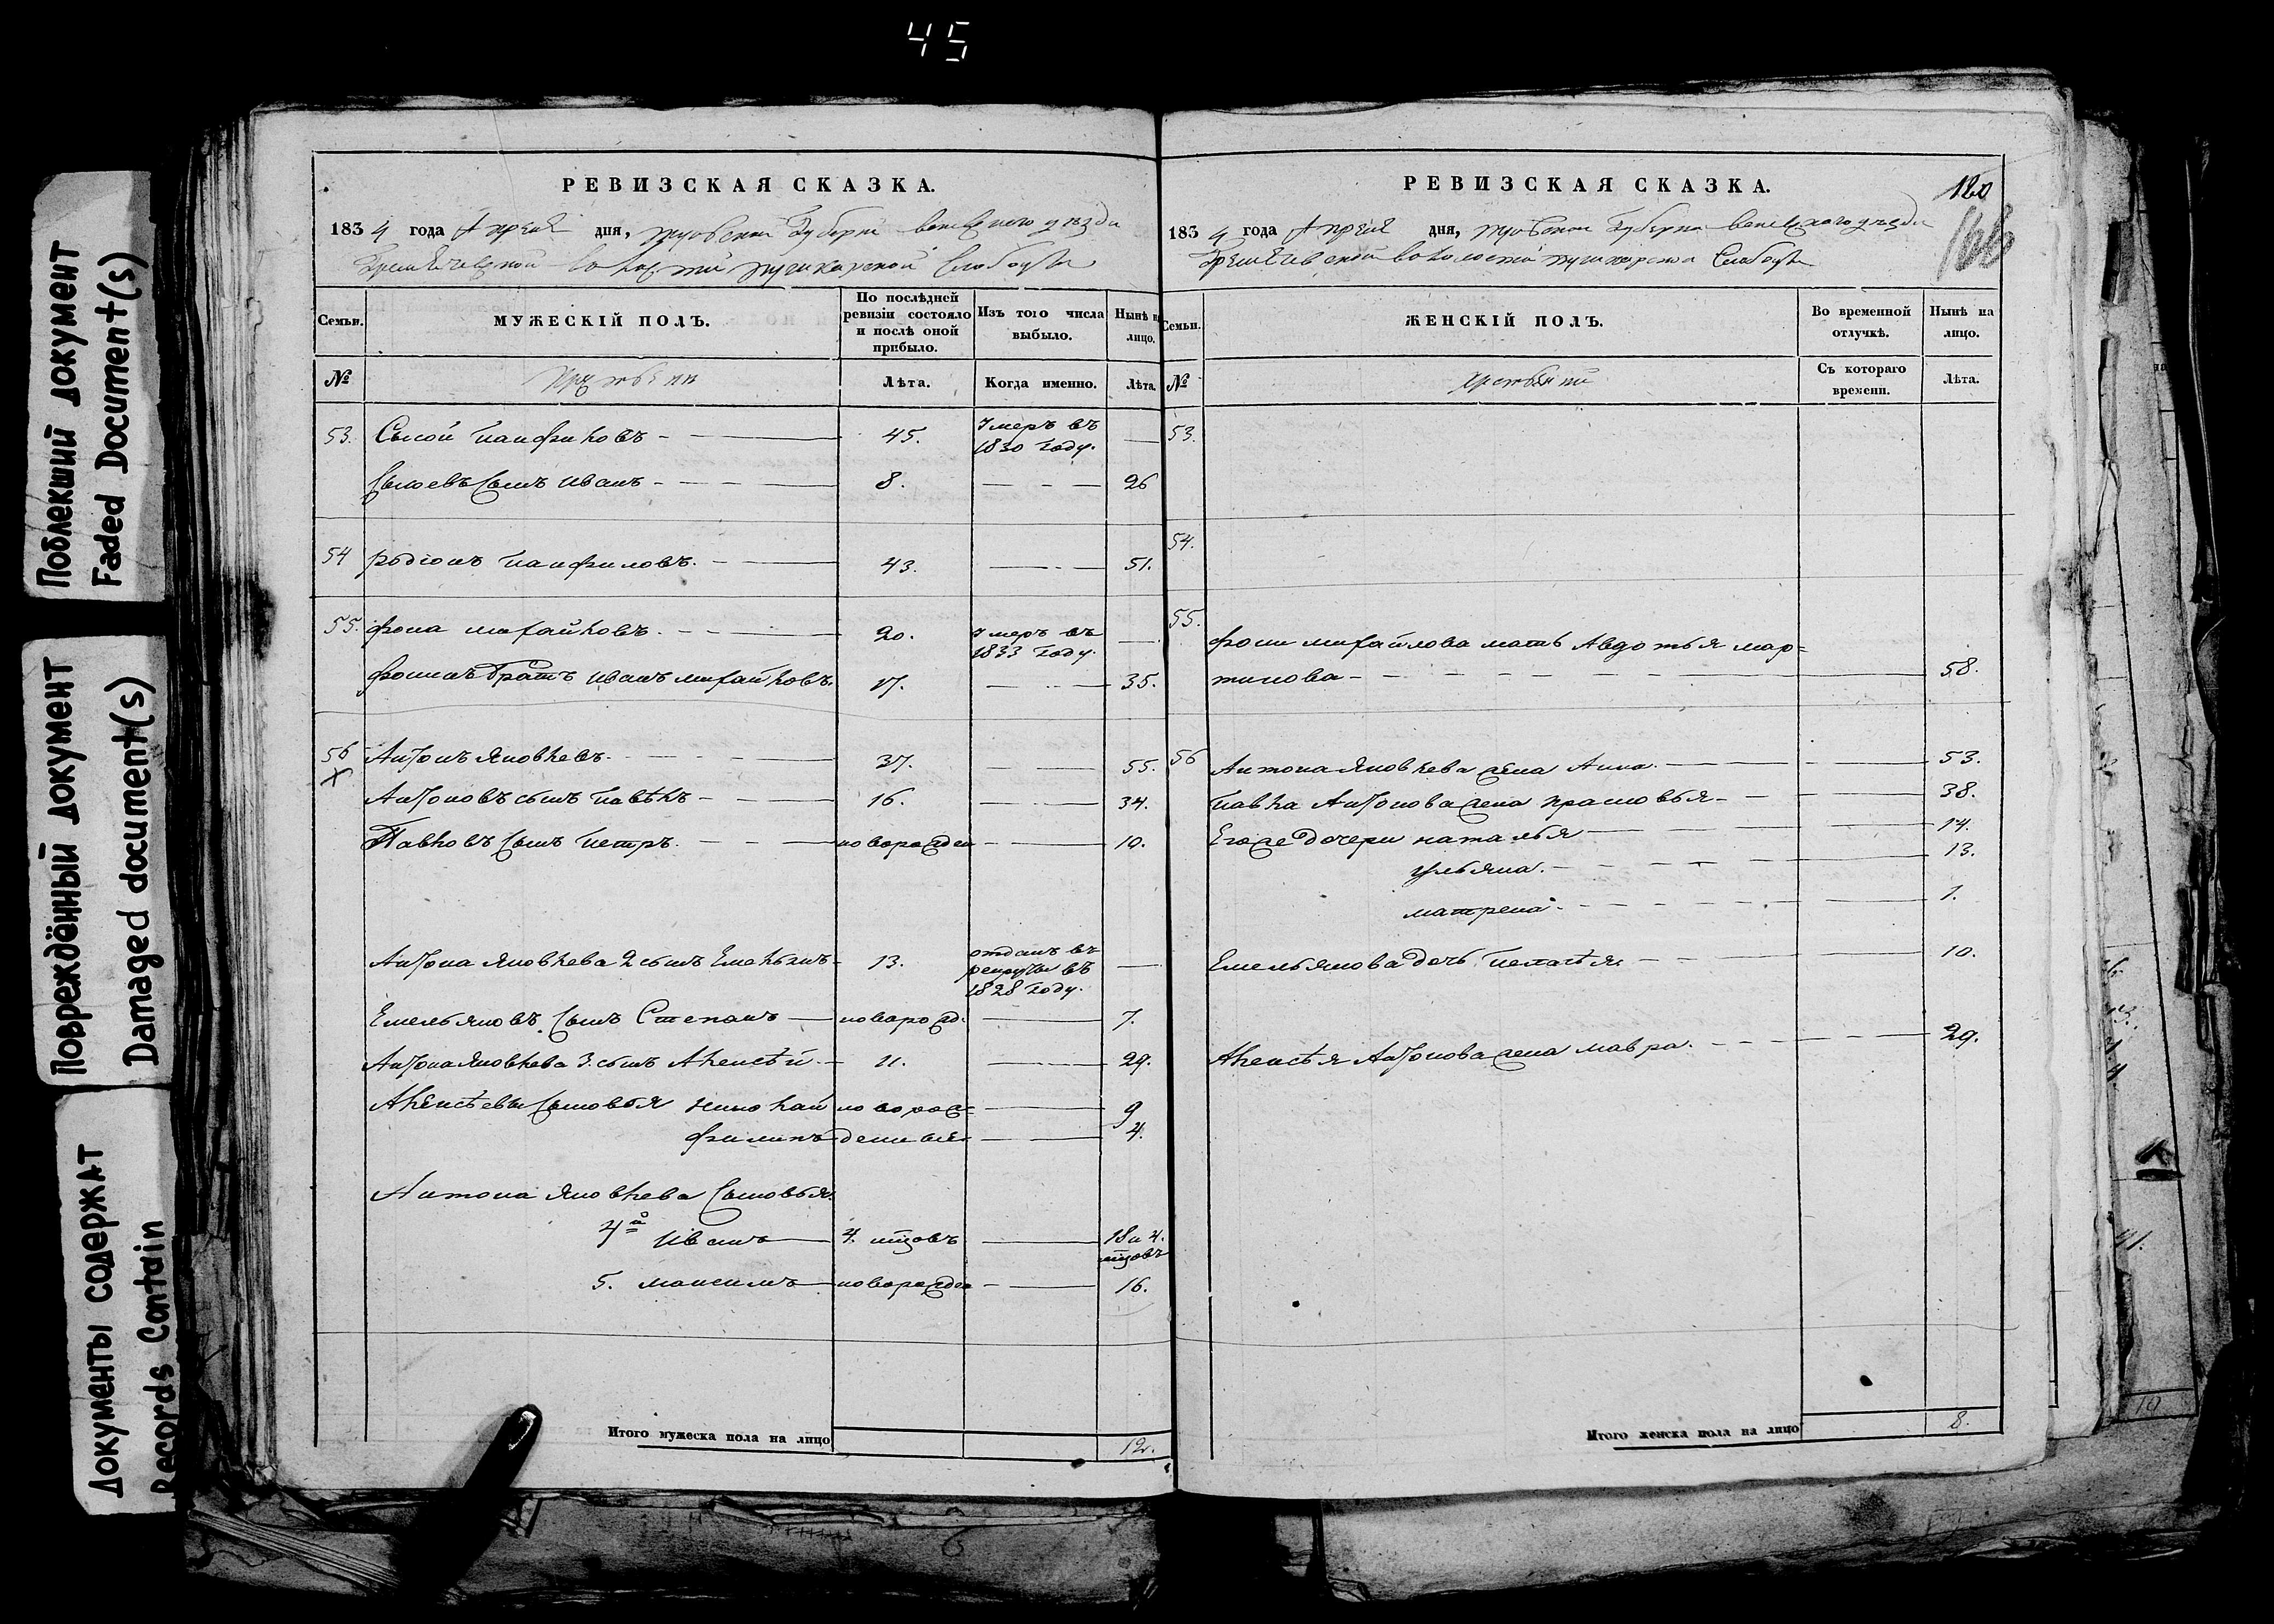 45
Поблекший документ
Faded Document(s)
Повреждённый документ
Damaged document(s)
Документы содержат
Records Contain
РЕВИЗСКАЯ СКАЗКА.
1834 года Апреля дня, тульской Губерни веневского уезда
волости пушкарской Слободы
Семьи.
МУЖЕСКІЙ ПОЛЪ.
По послѣдней ревизіи состояло и послѣ оной прибыло.
Изъ того числа выбыло.
Нынѣ на лицо.
№
Лѣта.
Когда именно.
Лѣта.
53. Сысой Панфиловъ 45. Умеръ въ 1830 году.
Сысоевъ Сынъ Иванъ 8. 26
54 Родіонъ Панфиловъ. 43. 51.
55. Фома михайловъ. 20. Умеръ въ 1833 году.
Фоминъ братъ Иванъ михайловъ. 17. 35.
56 Антонъ Яковлевъ. 37. 55.
Х
Антоновъ сынъ Павѣлъ 16. 34.
Павловъ Сынъ Петръ. новорожден 10.
Антона Яковлева 2 сынъ Емельянъ 13. отданъ въ рекруты въ 1828 году.
Емельяновъ Сынъ Степанъ новорожд. 7.
Антона Яковлева 3. сынъ Алексѣй. 11. 29.
Алексѣевы Сыновья николай новорож= 9
филипъ денные 4.
Антона Яковлева Сыновья.
4й Иванъ 4. мцовъ 18 и 4. мцовъ
5. максимъ новорожде 16.
Итого мужеска пола на лицо 12.
РЕВИЗСКАЯ СКАЗКА.
120
166
1834 года Апреля дня, тульской Губерни веневского уезда
волости пушкарской Слободы
Семьи.
ЖЕНСКІЙ ПОЛЪ.
Во временной отлучкѣ.
Нынѣ на лицо.
№
Съ котораго времени.
Лѣта.
53.
54.
55.
Фомы михайлова мать Авдотья мар=
тинова 58.
56 Антона Яковлева жена Анна. 53.
Павла Антонова жена прасковья 38.
Егоже дочери наталья 14.
ульяна. 13.
матрена. 1.
Емельянова дочь пелагѣя. 10.
Алексѣя Антонова жена мавра. 29.
Итого женска пола на лицо 8.